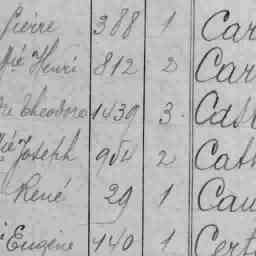 Pierre 388 1 Car
Henri 812 2 Car
Théodore 1439 3
Joseph 954 2
René 29 1 Cau
Eugène 440 1 Cert